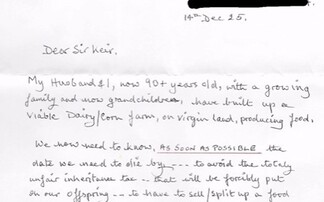 14th Dec 25.
Dear Sir Keir.
My Husband & I, now 90+ years old, with a growing
family and now grandchildren, have built up a
viable Dairy/Corn farm, on virgin land, producing food.
We now need to know, AS SOON AS POSSIBLE the
date we need to die by --- to avoid the totely
unfair inheritance tax -- that will be forcibly put
on our offspring -- to have to sell/split up a food